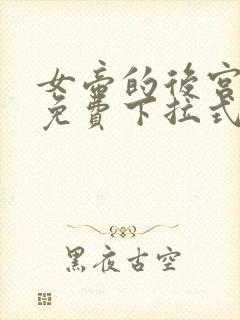 女帝的後宮
免費下拉式
黑夜古空